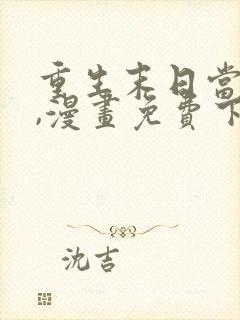 重生末日當
,漫畫免費下
沈吉